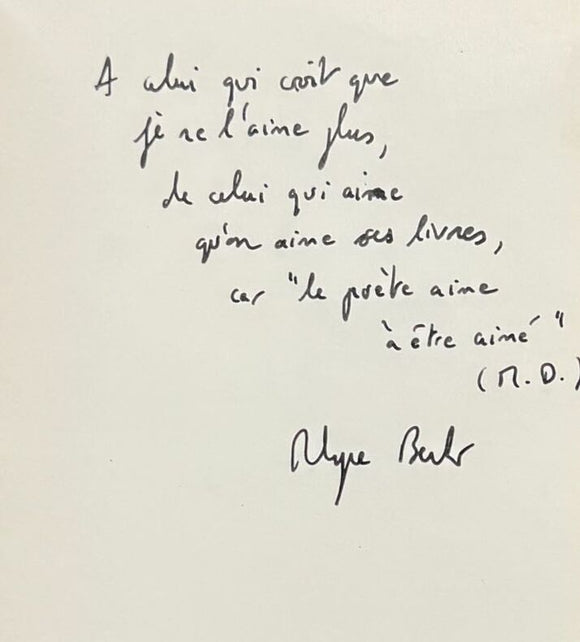 A celui qui croit que
je ne l'aime plus,
de celui qui aime
qu'on aime ses livres,
car "le poète aime
à être aimé"
(M.D.)